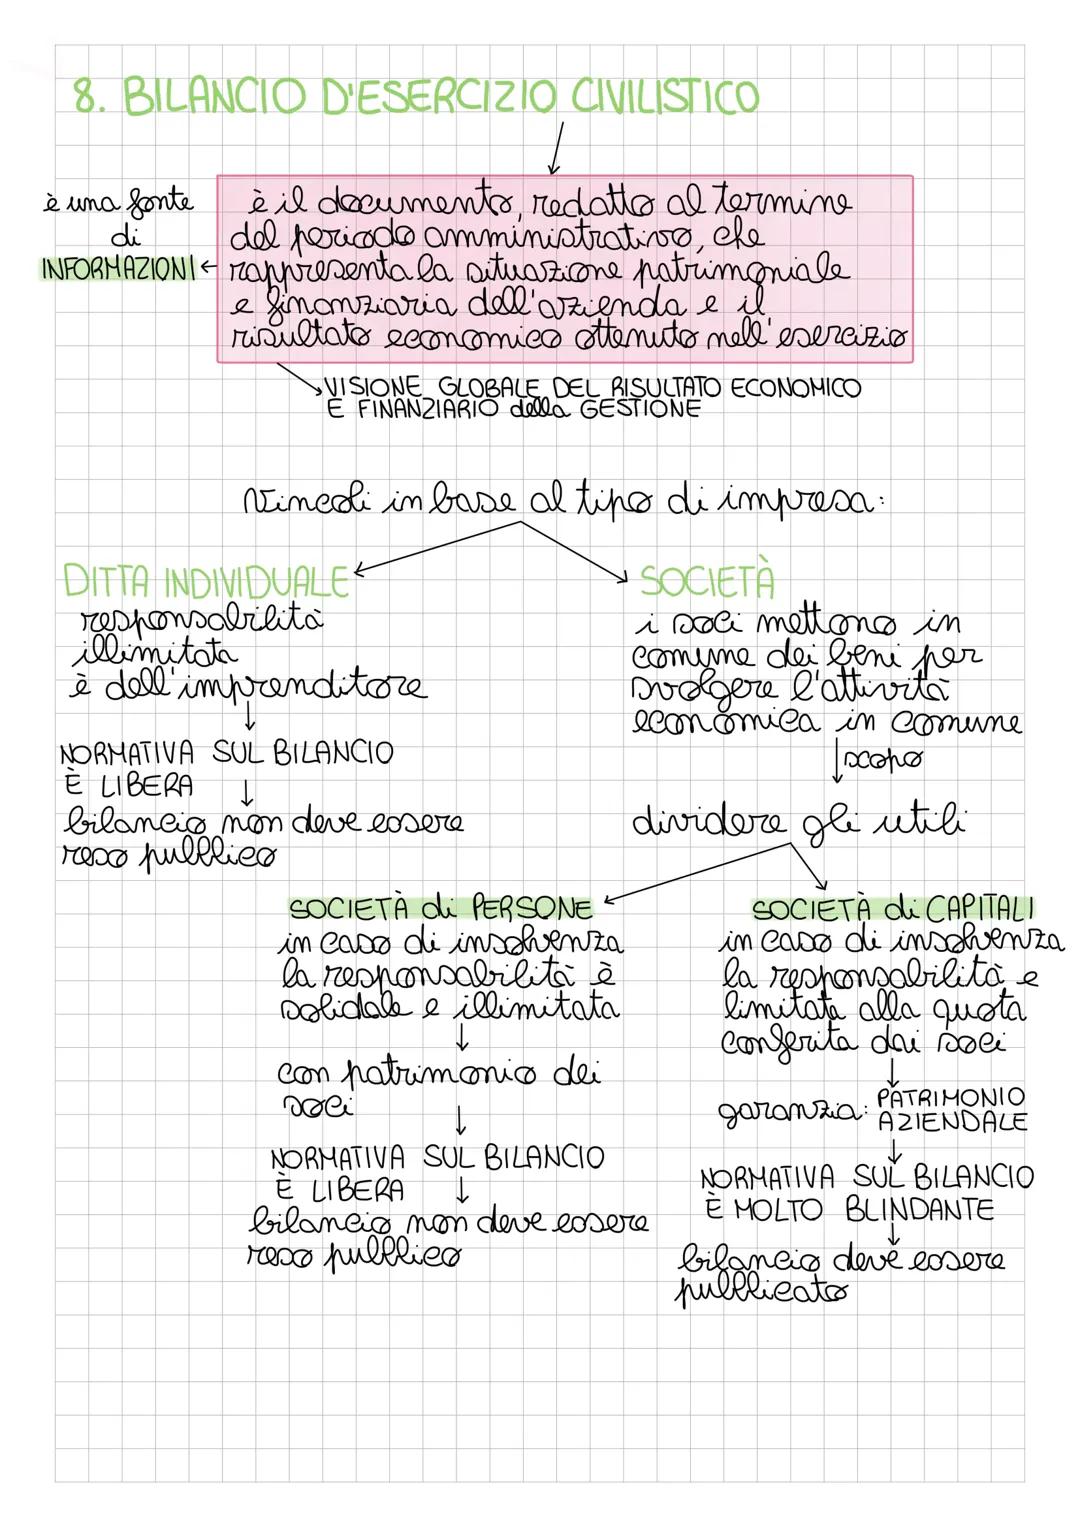 8. BILANCIO D'ESERCIZIO CIVILISTICO
è una fonte
di
INFORMAZIONI
è il documento, redatto al termine
del periodo amministrativo, che
rappresenta la situazione patrimoniale
e finanziaria dell'azienda e il
risultato economico ottenuto nell'esercizio
VISIONE GLOBALE DEL RISULTATO ECONOMICO
E FINANZIARIO della GESTIONE
Vincoli in base al tipo di impresa:
DITTA INDIVIDUALE
responsabilità
illimitata
è dell'imprenditore
NORMATIVA SUL BILANCIO
È LIBERA
bilancio non deve essere
reso pubblico
SOCIETÀ
i soci mettono in
comune dei beni per
svolgere l'attività
economica in comune
scopo
dividere gli utili
SOCIETÀ di PERSONE
in caso di insolvenza
la responsabilità è
solidale e illimitata
con patrimonio dei
soci
NORMATIVA SUL BILANCIO
È LIBERA
bilancio non deve essere
reso pubblico
SOCIETÀ di CAPITALI
in caso di insolvenza
la responsabilità e
limitata alla quota
conferita dai soci
garanzia: PATRIMONIO
AZIENDALE
NORMATIVA SUL BILANCIO
È MOLTO BLINDANTE
bilancio deve essere
pubblicato